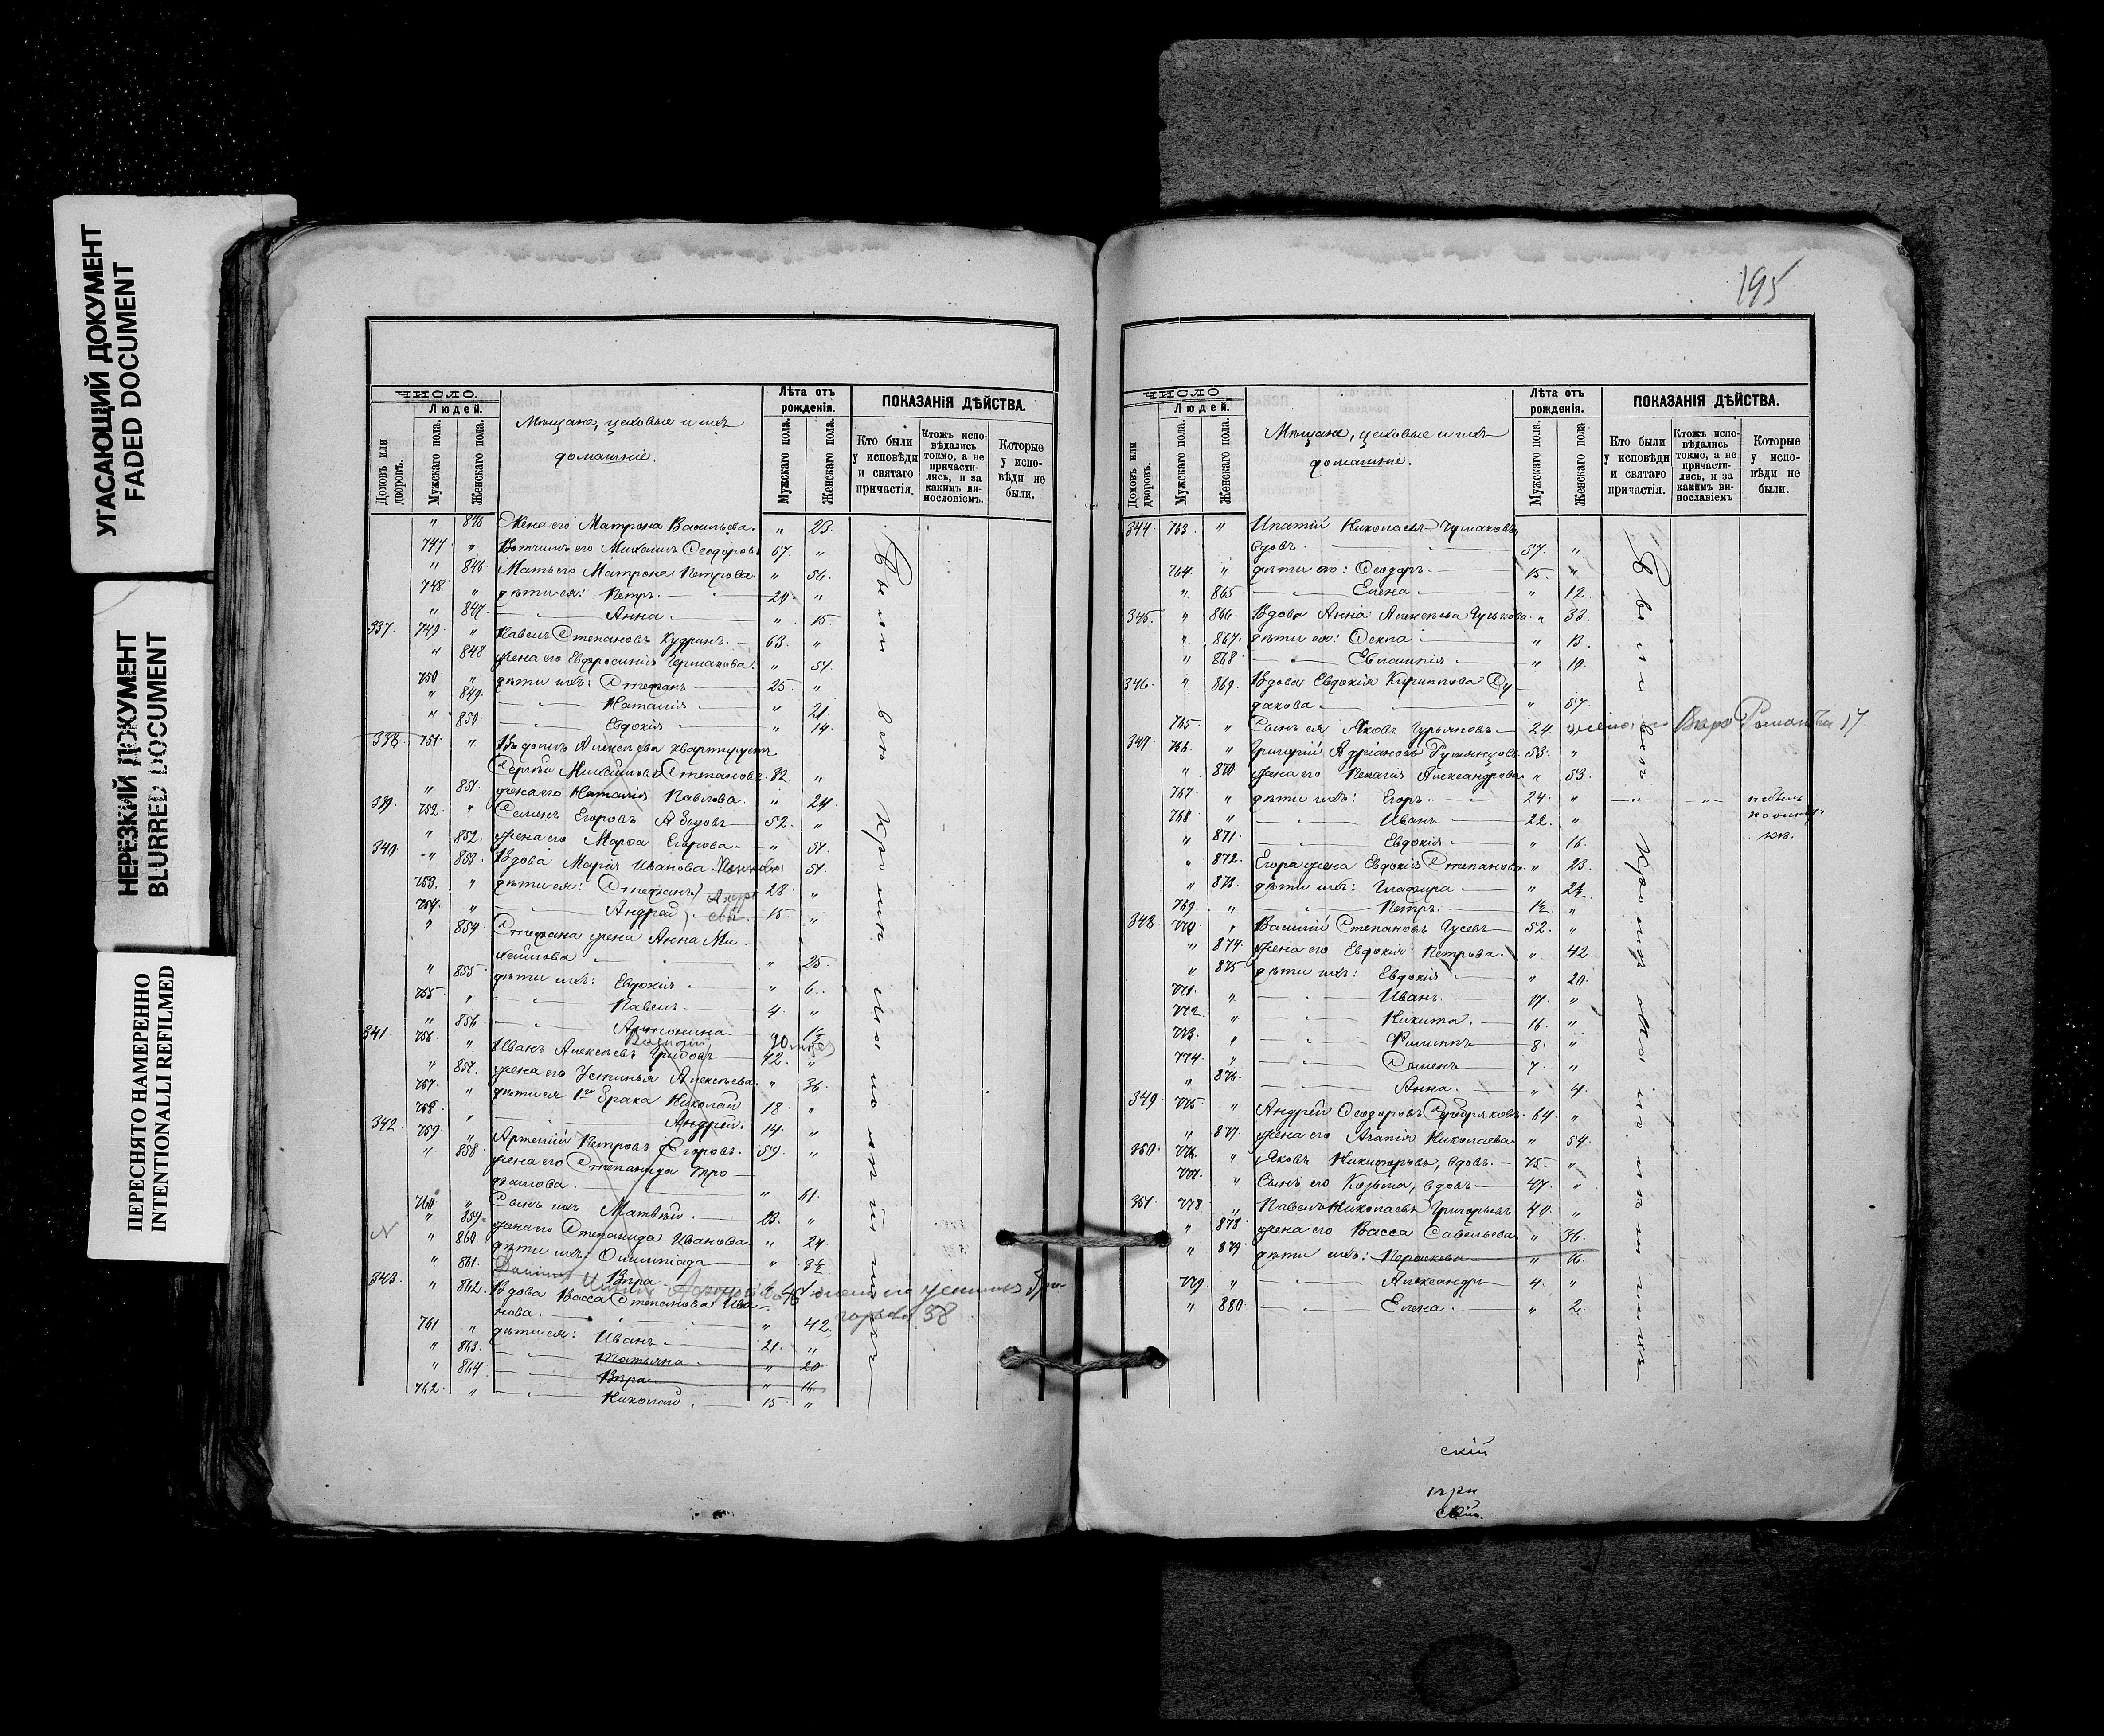 УГАСАЮЩИЙ ДОКУМЕНТ
FADED DOCUMENT
НЕРЕЗКИЙ ДОКУМЕНТ
BLURRED DOCUMENT
ПЕРЕСНЯТО НАМЕРЕННО
INTENTIONALLI REFILMED
ЧИСЛО.
Людей.
Домовъ или дворовъ.
Мужскаго пола.
Женскаго пола.
Мѣщане, цеховые и ихъ
домашніе.
Лѣта отъ рожденія.
Мужскаго пола.
Женскаго пола.
ПОКАЗАНІЯ ДѢЙСТВА.
Кто были у исповѣди и святаго причастія.
Ктожъ исповѣдались токмо, а не причастились, и за какимъ винословіемъ.
Которые у исповѣди не были.
" 845 Жена его Матрона Васильева. " 23.
747 " Вотчимъ его Михаилъ Ѳеодоровъ 67. "
" 846 Мать его Матрона Петрова. " 56.
748 " дѣти ея: Петръ. 20. "
" 847. Анна " 15.
337. 749. " Павелъ Степановъ Кудринъ. 63. "
" 848 жена его Евфросинія " 51.
750 " дѣти ихъ: Стефанъ 25. "
" 849. Наталія " 21.
" 850 Евдокія " 14.
338. 751. " Алексѣева квартируетъ
Сергѣй Михайловъ Степановъ. 32 "
" 851. жена его Наталія Павлова. " 24
339. 752. " Семенъ Егоровъ 52. "
" 852. жена его Марѳа Егорова. " 51.
340. " 853. Вдова Марія Иванова " 51.
753. " дѣти ея: Стефанъ 28. "
754. " Андрей 15. "
" 854 Стефана жена Анна Ми-
хайлова " 25.
" 855 дѣти ихъ: Евдокія " 6.
755 " Павелъ. 4. "
" 856 Антонина.
341. 756. " Иванъ Алексѣевъ 42. "
" 857. жена его Устинья Алексѣева. " 36.
757. " дѣти ея 1го брака Николай 18. "
758. " Андрей. 14. "
342. 759. " Артемій Петровъ Егоровъ. 59. "
" 858 жена его Степанида Тро-
фимова. " 61.
760 " Сынъ ихъ Матвѣй. 23. "
" 859. жена его Степанида Иванова. " 24.
" 860. дѣти ихъ: Олимпіада "
" 861. Вѣра
343. " 862. Вдова Васса Степанова Ива-
нова. " 42.
761 " дѣти ея: Иванъ. 21. "
" 863. Татьяна " 20
" 864 Вѣра " 16
762 " Николай 15 "
Были всѣ кромѣ малолѣтнихъ
195
ЧИСЛО
Людей.
Домовъ или дворовъ.
Мужскаго пола.
Женскаго пола.
Мѣщане, цеховые и ихъ
домашніе.
Лѣта отъ рожденія.
Мужскаго пола.
Женскаго пола
ПОКАЗАНІЯ ДѢЙСТВА.
Кто были у исповѣди и святаго причастія.
Ктожъ исповѣдались токмо, а не причастились, и за какимъ винославіемъ
Которые у исповѣди не были.
344. 763. " Ипатій Николаевъ Чумаковъ,
вдовъ. 57. "
764. " дѣти его: Ѳеодоръ. 15. "
" 865 Елена " 12.
345. " 866. Вдова Анна Алексѣева Гуськова. " 33.
" 867. дѣти ея: Ѳекла " 13.
" 868 Евлампія " 10.
346. " 869. Вдова Евдокія Кириллова Су-
дакова. " 57.
765. " Сынъ ея Яковъ Гурьяновъ 24.
347. 766. " Григорій Адріановъ Румянцовъ 53. "
" 870 жена его Пелагія Александрова " 53.
767. " дѣти ихъ: Егоръ. 24. "
768 " Иванъ 22. "
" 871. Евдокія " 16.
" 872. Егора жена Евдокія Степанова " 23.
" 873. дѣти ихъ: Глафира "
769. " Петръ. "
348. 770. " Василій Степановъ Гусевъ 52. "
" 874. жена его Евдокія Петрова. " 42.
" 875 дѣти ихъ: Евдокія " 20.
771. " Иванъ. 17. "
772. " Никита. 16. "
773. " Филиппъ 8. "
774. " Семенъ 7. "
" 876. Анна. " 4.
349. 775 " Андрей Ѳеодоровъ Серебряковъ. 64. "
" 877. жена его Агапія Николаева " 54.
350. 776. " Яковъ Никифоровъ, вдовъ. 75. "
777. " Сынъ его Козьма, вдовъ 47. "
351. 778. " Павелъ Николаевъ Григорьевъ 40. "
" 878. жена его Васса Савельева " 36.
" 879. дѣти ихъ: Параскева " 16.
779. " Александръ 4. "
" 880. Елена. " 2.
Были всѣ кромѣ малолѣтнихъ
скій
скій.